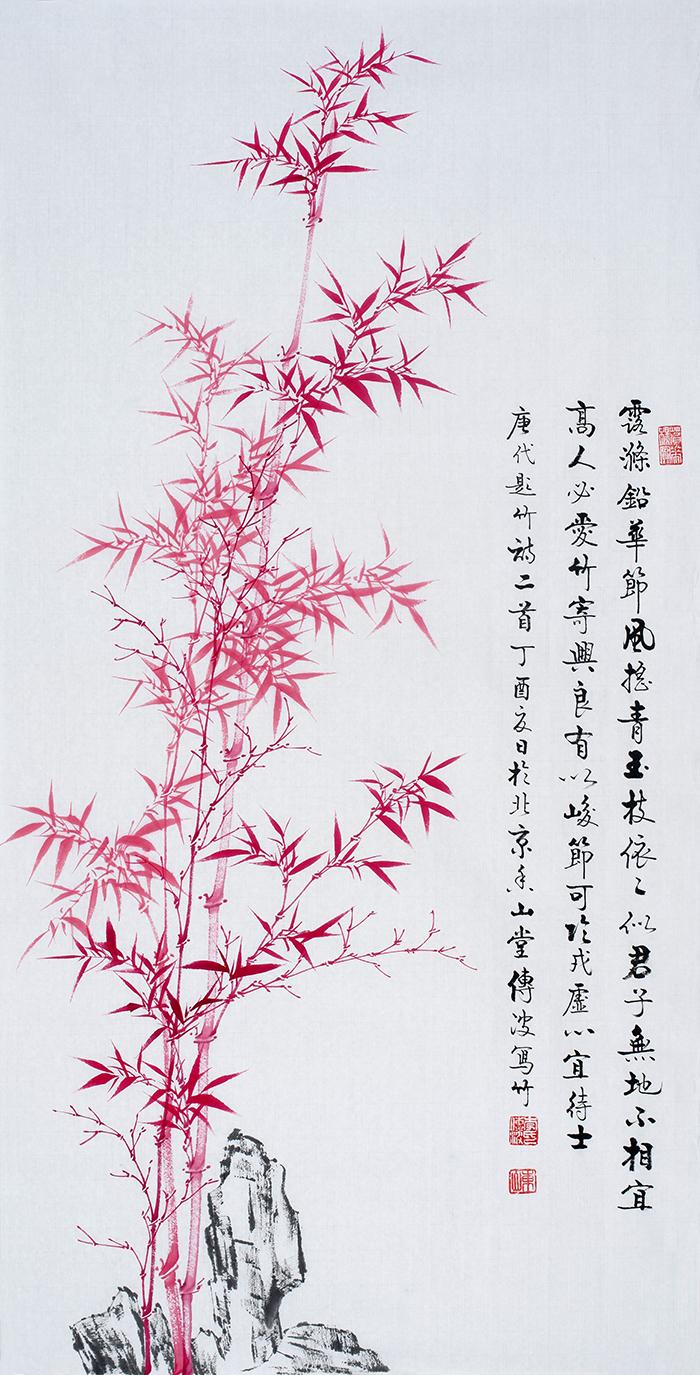 露滌鉛華節風搖青玉枝依〻似君子無地不相宜
高人必愛竹寄興良有以峻節可臨戎虛心宜待士
唐代題竹詩二首丁酉夏日於北京山堂傳波寫竹